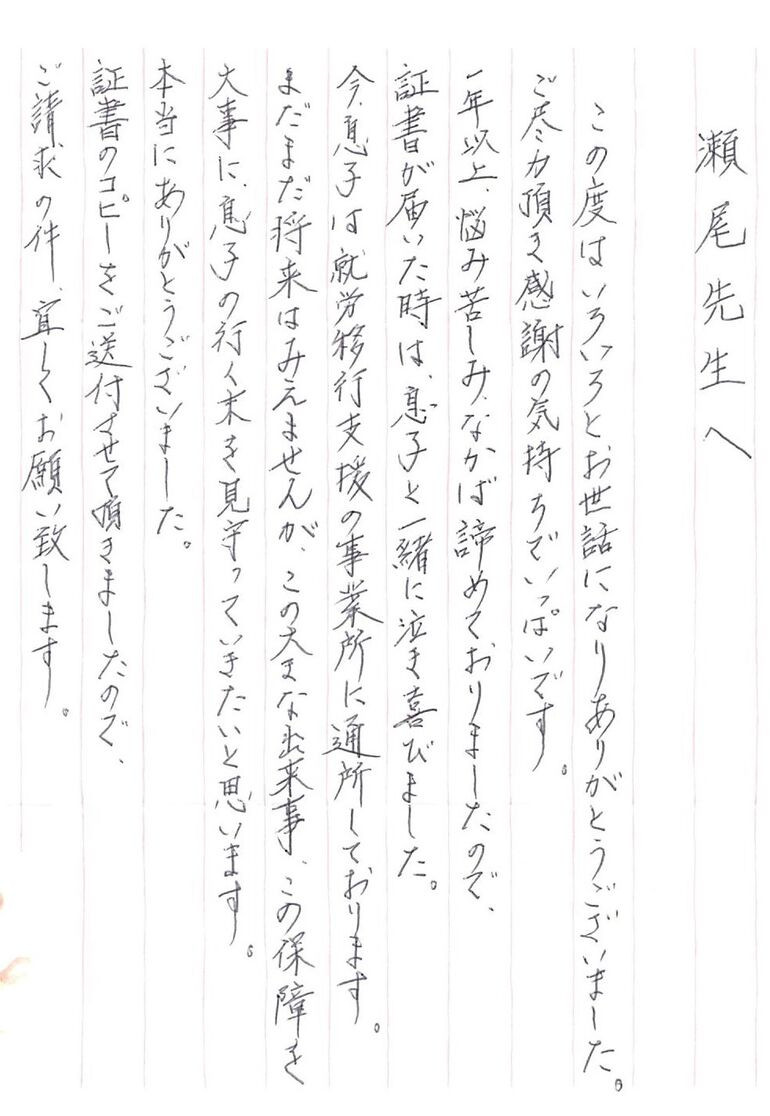 瀬尾先生へ
この度はいろいろとお世話になりありがとうございました。
ご尽力頂き感謝の気持ちでいっぱいです。
一年以上、悩み苦しみ、なかば諦めておりましたので、
証書が届いた時は、息子と一緒に泣き喜びました。
今、息子は就労移行支援の事業所に通所しております。
まだまだ将来はみえませんが、この大きな出来事、この保障を
大事に、息子の行く末を見守っていきたいと思います。
本当にありがとうございました。
証書のコピーをご送付させて頂きましたので、
ご請求の件、宜しくお願い致します。